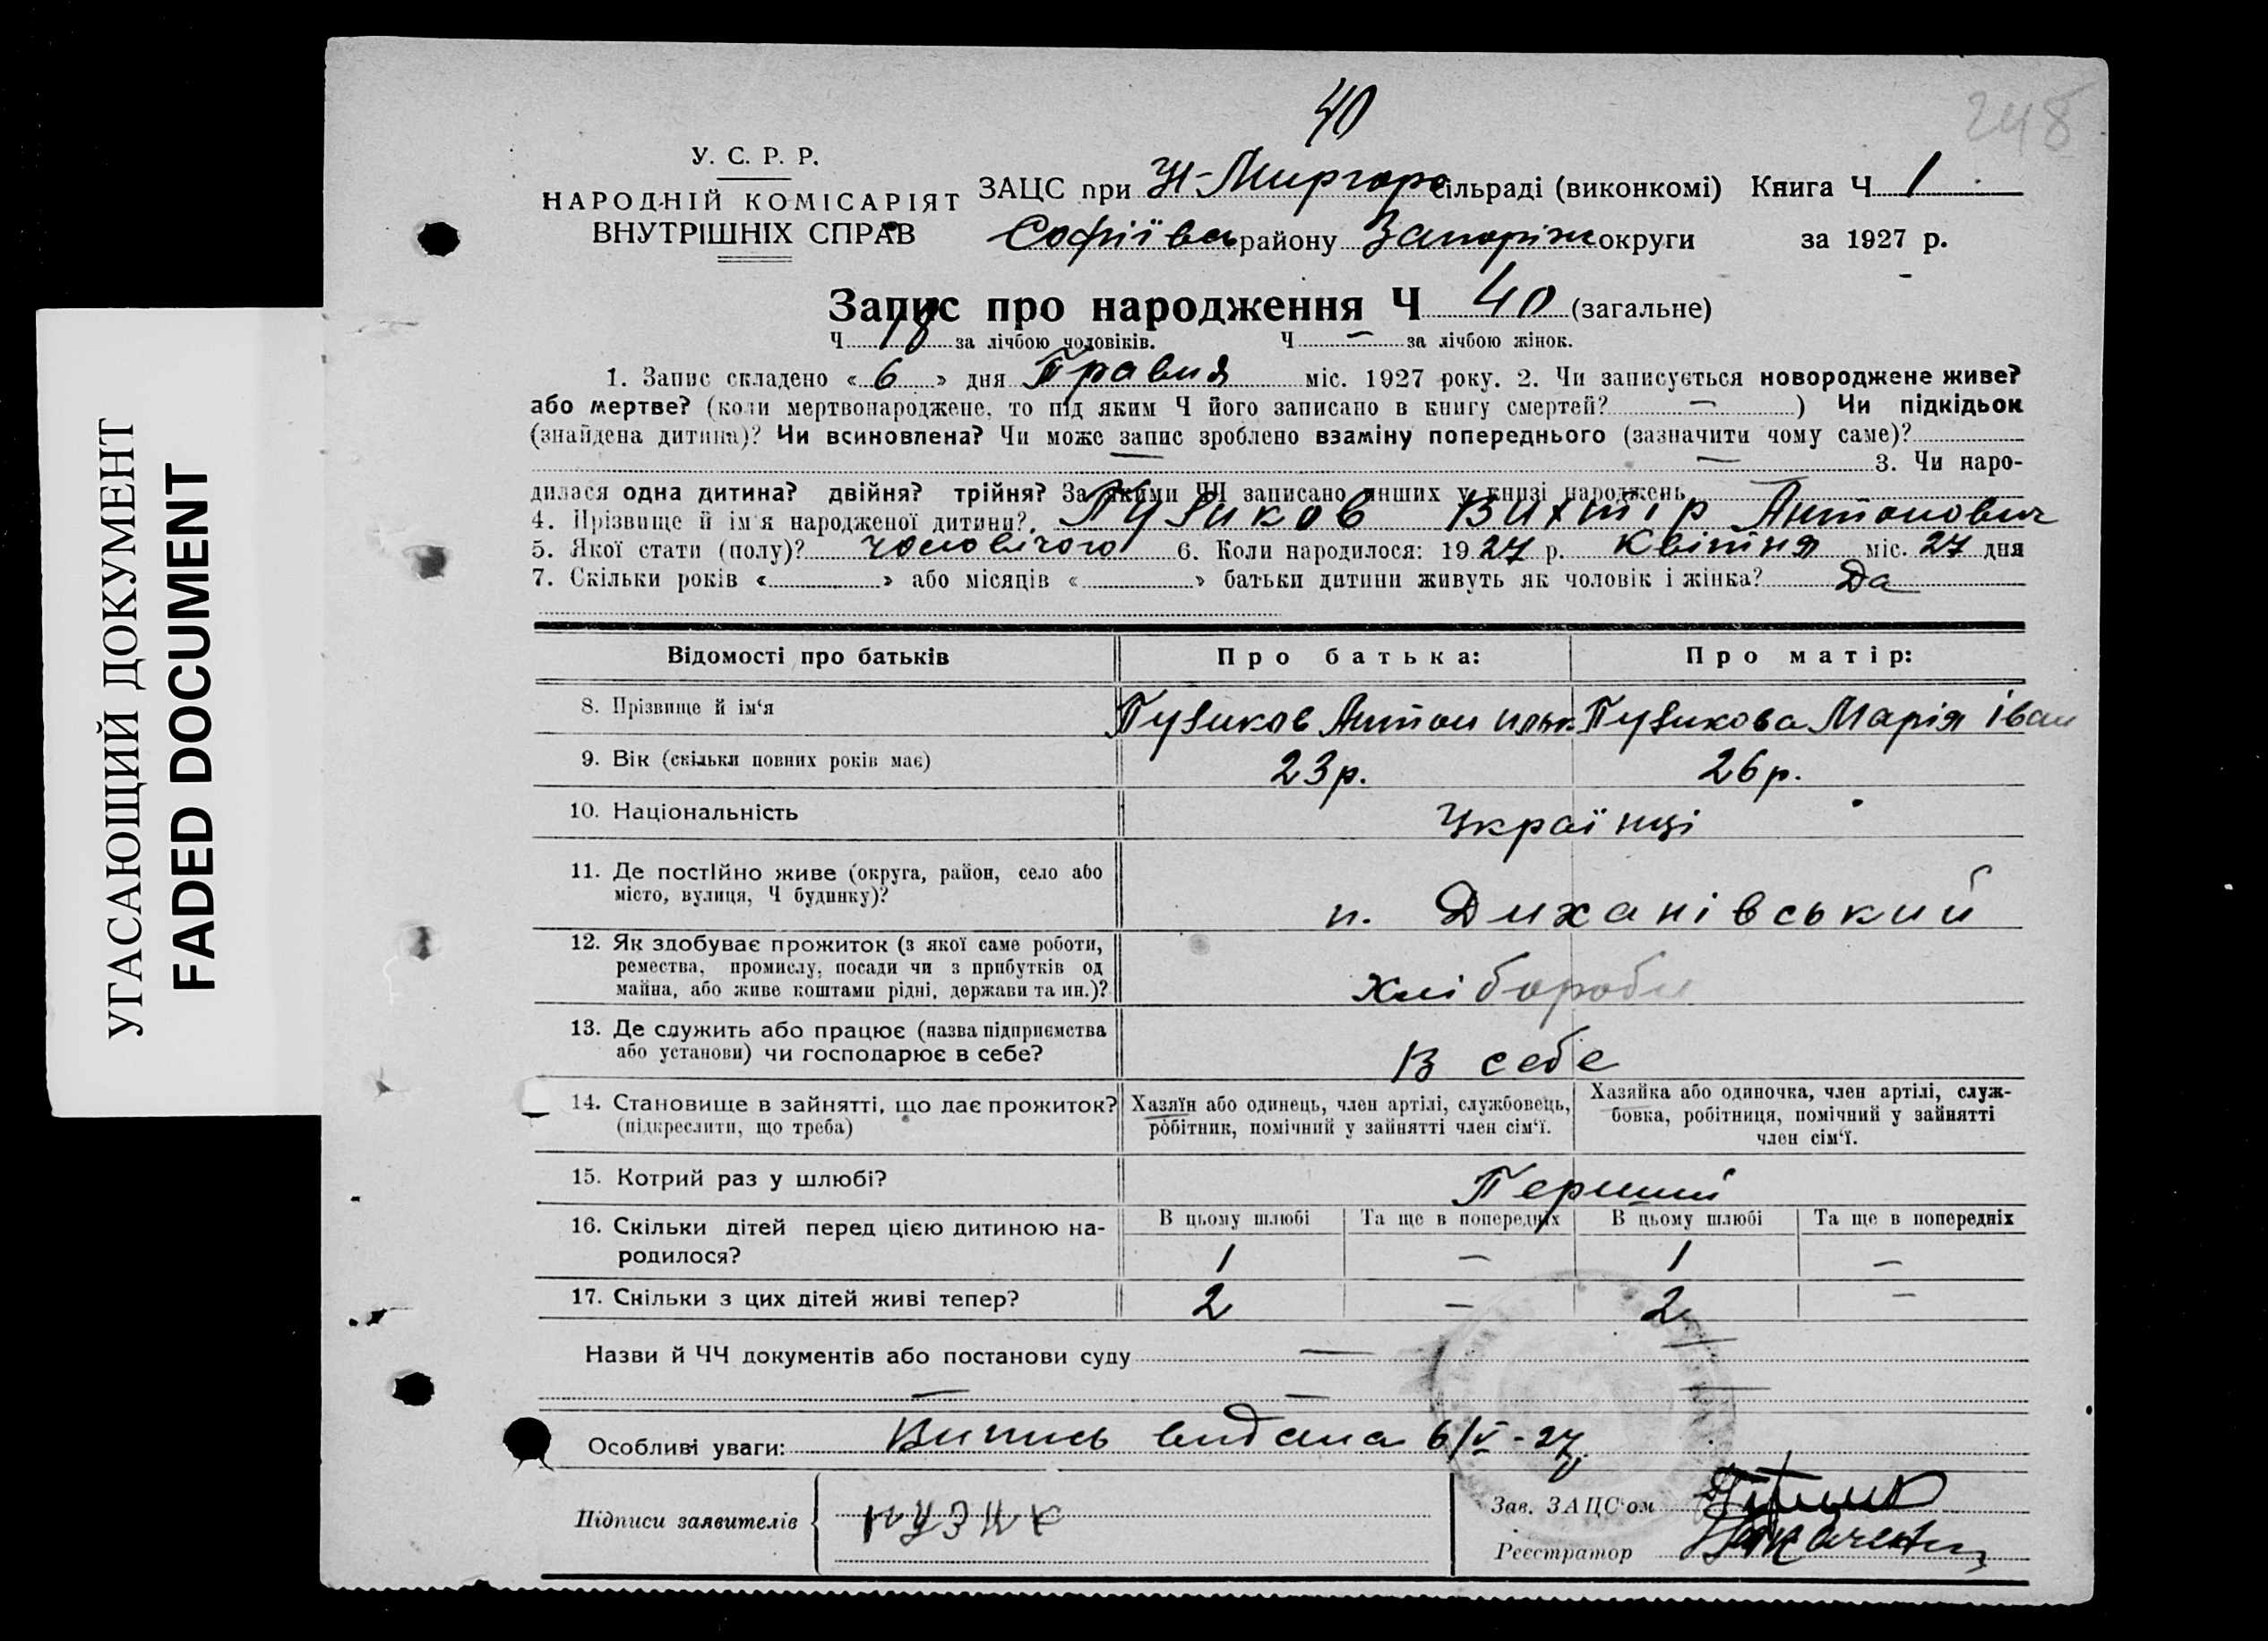 УГАСАЮЩИЙ ДОКУМЕНТ
FADED DOCUMENT
40
248
У. С. Р. Р.
НАРОДНІЙ КОМІСАРІЯТ
ВНУТРІШНІХ СПРАВ
ЗАЦС при Н-Миргор сільраді (виконкомі) Книга Ч 1
Софіївсь району Запоріж округи за 1927 р.
Запис про народження Ч 40 (загальне)
Ч 18 за лічбою чоловіків. Ч — за лічбою жінок.
1. Запис складено « 6 » дня Травня міс. 1927 року. 2. Чи записується новороджене живе?
або мертве? (коли мертвонароджене, то під яким Ч його записано в книгу смертей? — ) Чи підкідьок
(знайдена дитина)? Чи всиновлена? Чи може запис зроблено взаміну попереднього (зазначити чому саме)?
— 3. Чи наро-
дилася одна дитина? двійня? трійня? За якими ЧЧ записано инших у книзі народжень
4. Прізвище й ім'я народженої дитини? Пузиков Виктір Антонович
5. Якої стати (полу)? чоловічого 6. Коли народилося: 1927 р. Квітня міс. 27 дня
7. Скільки років « » або місяців « » батьки дитини живуть як чоловік і жінка? Да
Відомості про батьків Про батька: Про матір:
8. Прізвище й ім‘я Пузиков Антон Пузикова Марія Іван
9. Вік (скільки повних років має) 23 р. 26 р.
10. Національність Українці
11. Де постійно живе (округа, район, село або
місто, вулиця, Ч будинку)? п. Диханівський
12. Як здобуває прожиток (з якої саме роботи,
ремества, промислу, посади чи з прибутків од
майна, або живе коштами рідні, держави та ин.)? Хлібороби
13. Де служить або працює (назва підприємства
або установи) чи господарює в себе? В себе
14. Становище в зайнятті, що дає прожиток?
(підкреслити, що треба)
Хазяїн або одинець, член артілі, службовець,
робітник, помічний у зайнятті член сім‘ї.
Хазяйка або одиночка, член артілі, служ-
бовка, робітниця, помічний у зайнятті
член сім‘ї.
15. Котрий раз у шлюбі? Перший
16. Скільки дітей перед цією дитиною на-
родилося?
В цьому шлюбі Та ще в попередніх В цьому шлюбі Та ще в попередніх
1 — 1 —
17. Скільки з цих дітей живі тепер? 2 — 2 —
Назви й ЧЧ документів або постанови суду —
— — —
Особливі уваги: Випись видана 6/V - 27
Підписи заявителів
Зав. ЗАЦС'ом
Реєстратор